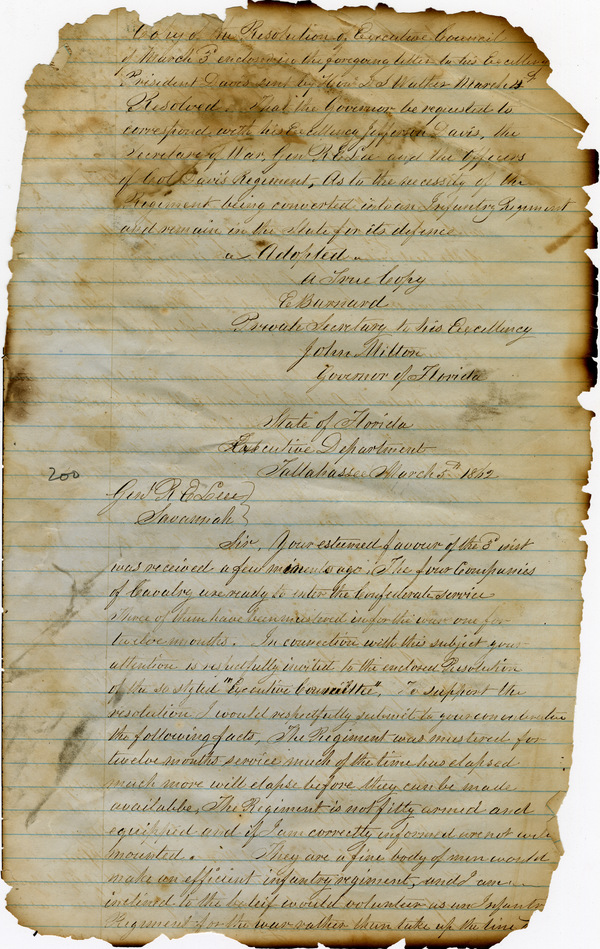 Copy of the Resolution of Executive Council
of March 3d endorsed in the foregoing letter to his Excellency
President Davis sent by Hon. D S Walker March 4th
Resolved. That the Governor be requested to
correspond with his Excellency Jefferson Davis, the
Secretary of War, Genl R E Lee and the Officers
of Col Davis Regiment, As to the necessity of the
Regiment being converted into an Infantry Regiment
and remain in the State for its defence
Adopted
A True Copy
E Barnard
Private Secretary to his Excellency
John Milton
Governor of Florida
State of Florida
Executive Department
Tallahassee March 5th 1862
200
Genl R E Lee
Savannah
Sir, Your esteemed favour of the 3d inst
was received a few moments ago. The four Companies
of Cavalry are ready to enter the Confederate service
Three of them have been mustered in for the war one for
twelve months. In connection with this subject your
attention is respectfully invited to the enclosed Resolution
of the so styled "Executive Committee". To support the
resolution I would respectfully submit to your consideration
the following facts, The Regiment was mustered for
twelve months service much of the time has elapsed
much more will elapse before they can be made
availible, The Regiment is not fitly armed and
equipped and if I am correctly informed are not well
mounted. They are a fine body of men would
make an efficient infantry regiment, and I am
inclined to the beleif would volunteer as an Infantry
Regiment for the war rather than take up the time